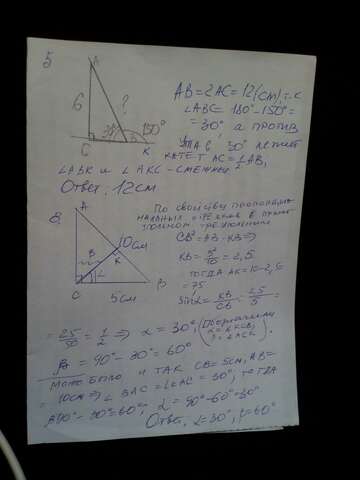 5
A
6
?
30°
150°
C
B
K
AB = 2AC = 12(см), т.к
∠ABC = 180° - 150° =
= 30°, а против
угла в 30° лежит
катет AC = 1/2 AB,
∠ABK и ∠ - смежные
Ответ: 12 см
8.
A
10 см
K
β
α
C
5 см
B
По свойству пропорцио-
нальных отрезков в прямо-
угольном треугольнике
CB² = AB · KB ⇒
KB = 5²/10 = 2,5
тогда AK = 10 - 2,5 =
= 7,5
sin α = KB/CB = 2,5/5 =
= 25/50 = 1/2 ⇒ α = 30°, (Обозначили
α = ∠KCB,
β = ∠ACK).
β = 90° - 30° = 60°
Можно было и так CB = 5 см, AB =
= 10 см ⇒ ∠BAC = ∠CAK = 30°, тогда
90° - 30° = 60°, α = 90° - 60° = 30°
Ответ, α = 30°, β = 60°